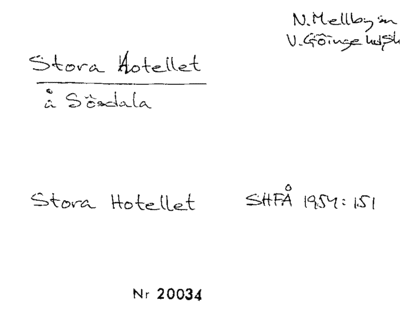 N. Mellby sn
V. Göinge hd, Sk
Stora Hotellet
å Sösdala
Stora Hotellet SHFÅ 1954: 151
Nr 20034